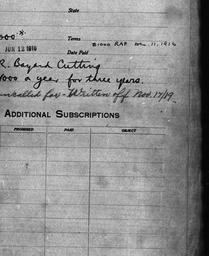 State
000.*
Terms
$1000 RAF Mr. 11, 1916
JUN 12 1916
Date Paid
R. Bayard Cutting
1000 a year for three years.
uncalled for - Written off Nov. 17/19.
ADDITIONAL SUBSCRIPTIONS
PROMISED PAID OBJECT